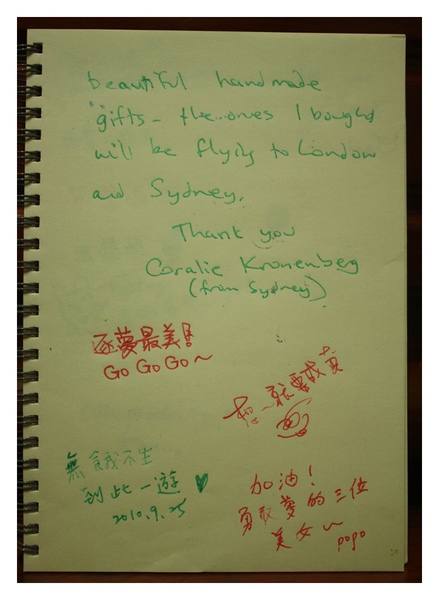 beautiful handmade
gifts - the ones I bought
will be flying to London
and Sydney.
Thank you
Coralie Kronenberg
(from Sydney)
逐夢最美!
GO GO GO~
就要成真
無
不生
到此一遊 ♥
2010.9.25
加油!
勇敢夢的三位
美女~
popo